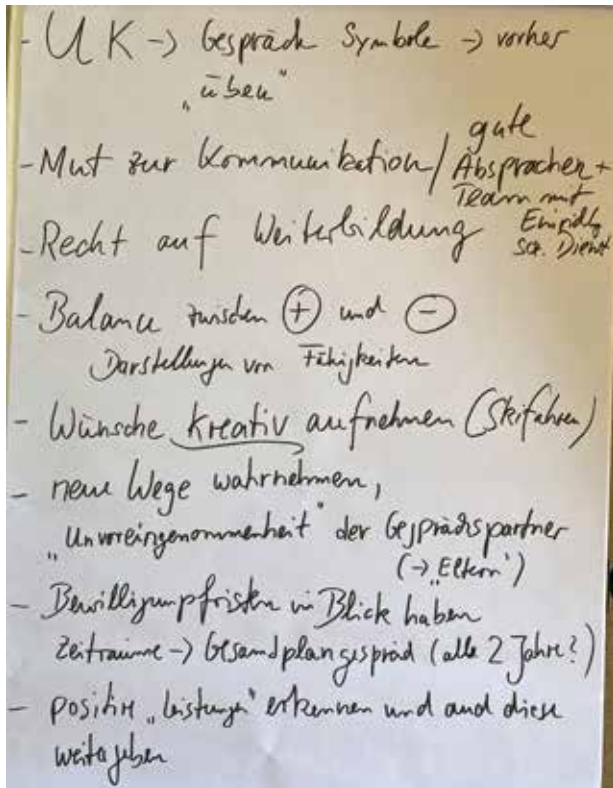 - UK -> Gespräch Symbole -> vorher
„üben"
- Mut zur Kommunikation / gute
Absprachen +
Team mut
- Recht auf Weiterbildung
soz. Dienst
- Balance zwischen + und -
Darstellungen von Fähigkeiten
- Wünsche kreativ aufnehmen (Skifahren)
- neue Wege wahrnehmen,
„Unvoreingenommenheit" der Gesprächspartner
(-> „Eltern")
- Bewilligungsfristen im Blick haben
Zeiträume -> Gesamtplangespräch (alle 2 Jahre?)
- positive „Leistungen" erkennen und auch diese
weitergeben